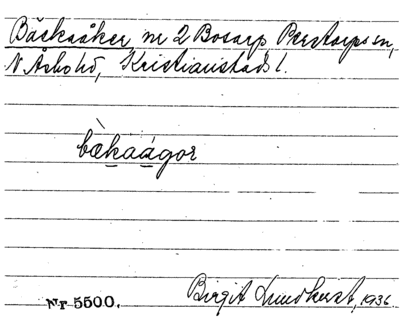 Bäckaåker, nr 2 Bosarp Perstorps sn,
N Åsbo hd, Kristianstads l.
bæ̀kaágor
Birgit Lundkvist, 1936
Nr 5500.